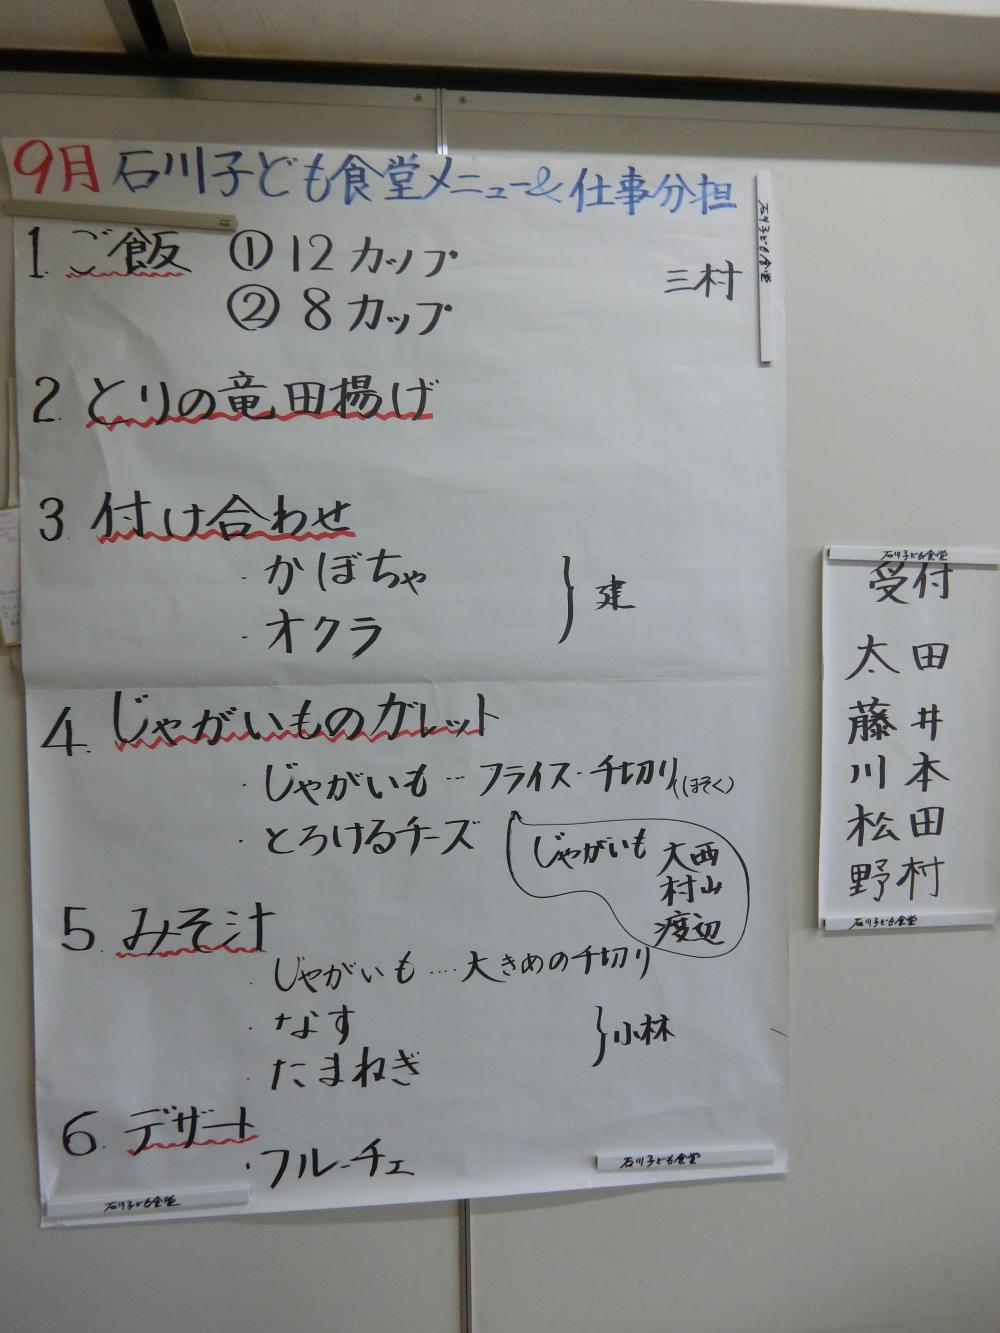 9月 石川子ども食堂メニュー&仕事分担
1. ご飯 ① 12 カップ
② 8 カップ
三村
2. とりの竜田揚げ
3 付け合わせ
・かぼちゃ
・オクラ
} 建
4. じゃがいものガレット
・じゃがいも … フライス・千切り(ほそく)
・とろけるチーズ
じゃがいも 大西
村山
渡辺
5. みそ汁
・じゃがいも …. 大きめの千切り
・なす
・たまねぎ
} 小林
6. デザート
・フルーチェ
石川子ども食堂
石川子ども食堂
石川子ども食堂
石川子ども食堂
受付
太田
藤井
川本
松田
野村
石川子ども食堂